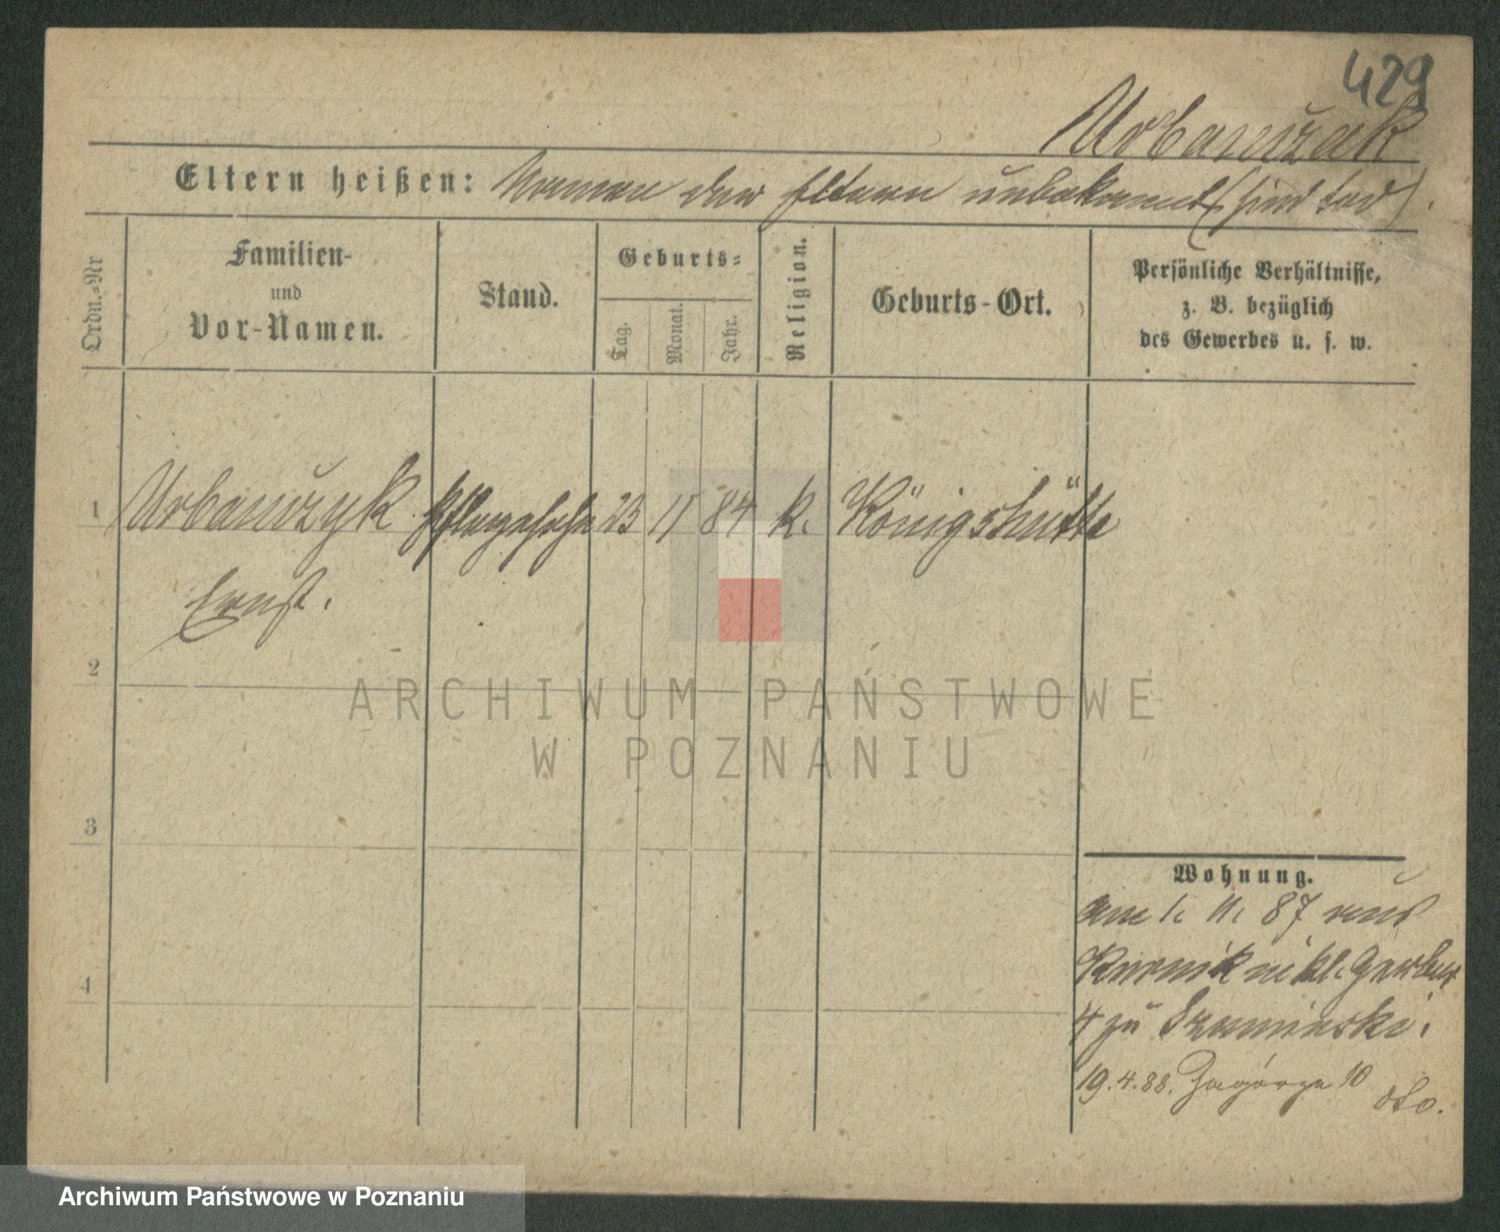 429
Urbanczak
Eltern heißen: Namen der Eltern unbekannt (sind tod).
Ordn.-Nr
Familien-
und
Vor-Namen.
Stand.
Geburts-
Tag.
Monat.
Jahr.
Religion.
Geburts-Ort.
Persönliche Verhältnisse,
z. B. bezüglich
des Gewerbes u. s. w.
1 Urbanczyk Pflegesohn 23 11 84 k. Königshütte
Ernst.
2
3
4
Wohnung.
am 1. 11. 87 aus
Kurnik n kl. Gerber
4 zu Szuminski.
19.4.88. Zagórze 10
dto.
ARCHIWUM PAŃSTWOWE
W POZNANIU
Archiwum Państwowe w Poznaniu